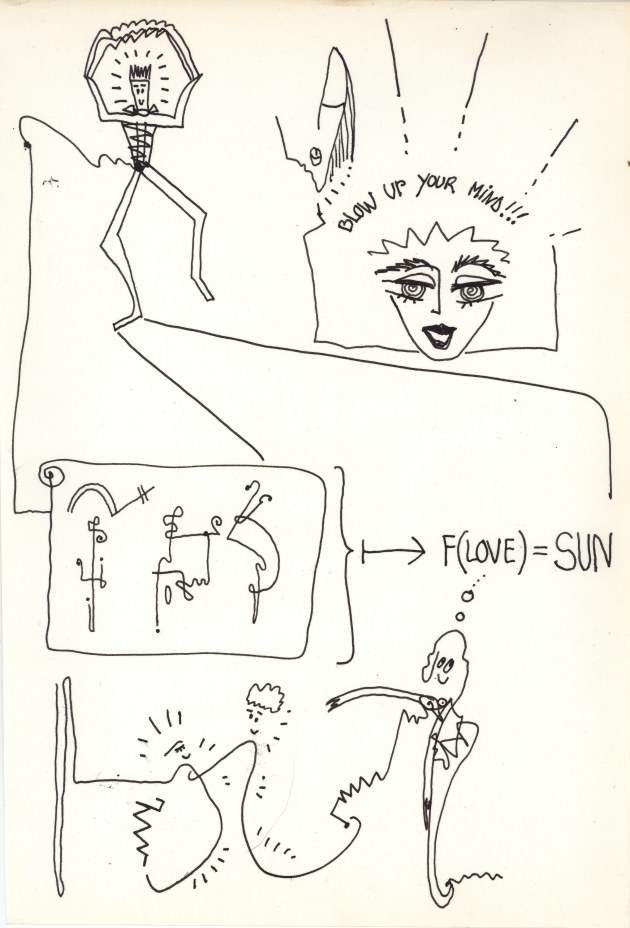 BLOW UP YOUR MIND!!!
F(LOVE) = SUN